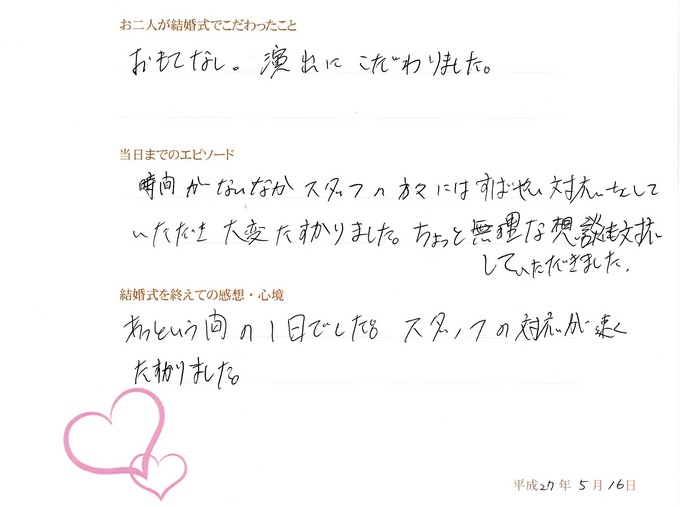 お二人が結婚式でこだわったこと
おもてなし。演出に こだわりました。
当日までのエピソード
時間がないなか スタッフの方々には すばやい対応をして
いただき 大変たすかりました。ちょっと無理な想談も対応
していただきました。
結婚式を終えての感想・心境
あっという間の1日でした。スタッフの対応が速く
たすかりました。
平成27年5月16日